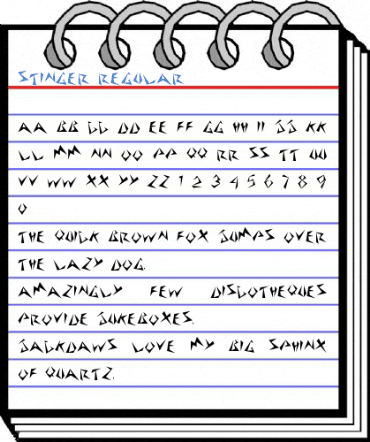 STINGER REGULAR
AA BB CC DD EE FF GG HH II JJ KK
LL MM NN OO PP QQ RR SS TT UU
VV WW XX YY ZZ 1 2 3 4 5 6 7 8 9
0
THE QUICK BROWN FOX JUMPS OVER
THE LAZY DOG.
AMAZINGLY FEW DISCOTHEQUES
PROVIDE JUKEBOXES.
JACKDAWS LOVE MY BIG SPHINX
OF QUARTZ.